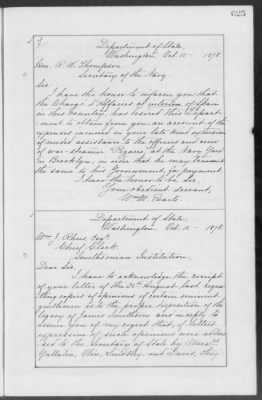 625
Department of State,
Washington, Oct 15 1878.
Hon. R. W. Thompson,
Secretary of the Navy.
Sir:
I have the honor to inform you that
the Chargé d'Affaires ad interim of Spain
in this Country, has desired this Depart-
ment to obtain from you an account of the
expenses incurred in your late kind extension
of needed assistance to the officers and crew
of war-steamer "Pizarro," at the Navy Yard
in Brooklyn, in order that he may transmit
the same to his Government, for payment.
I have the honor to be, Sir,
Your obedient servant,
Wm. M. Evarts.
Department of State,
Washington, Oct. 15 1878.
Wm J. Rhees Esqr.
Chief Clerk
Smithsonian Institution.
Dear Sir,
I have to acknowledge the receipt
of your letter of the 26th August last, regar-
ding copies of opinions of certain eminent
gentlemen as to the proper disposition of the
legacy of James Smithson and in reply to
assure you of my regret that, if letters
expressive of such opinions were addres-
sed to the Secretary of State by Messrs
Gallatin, Rhee, Lindsley, and Davis, they